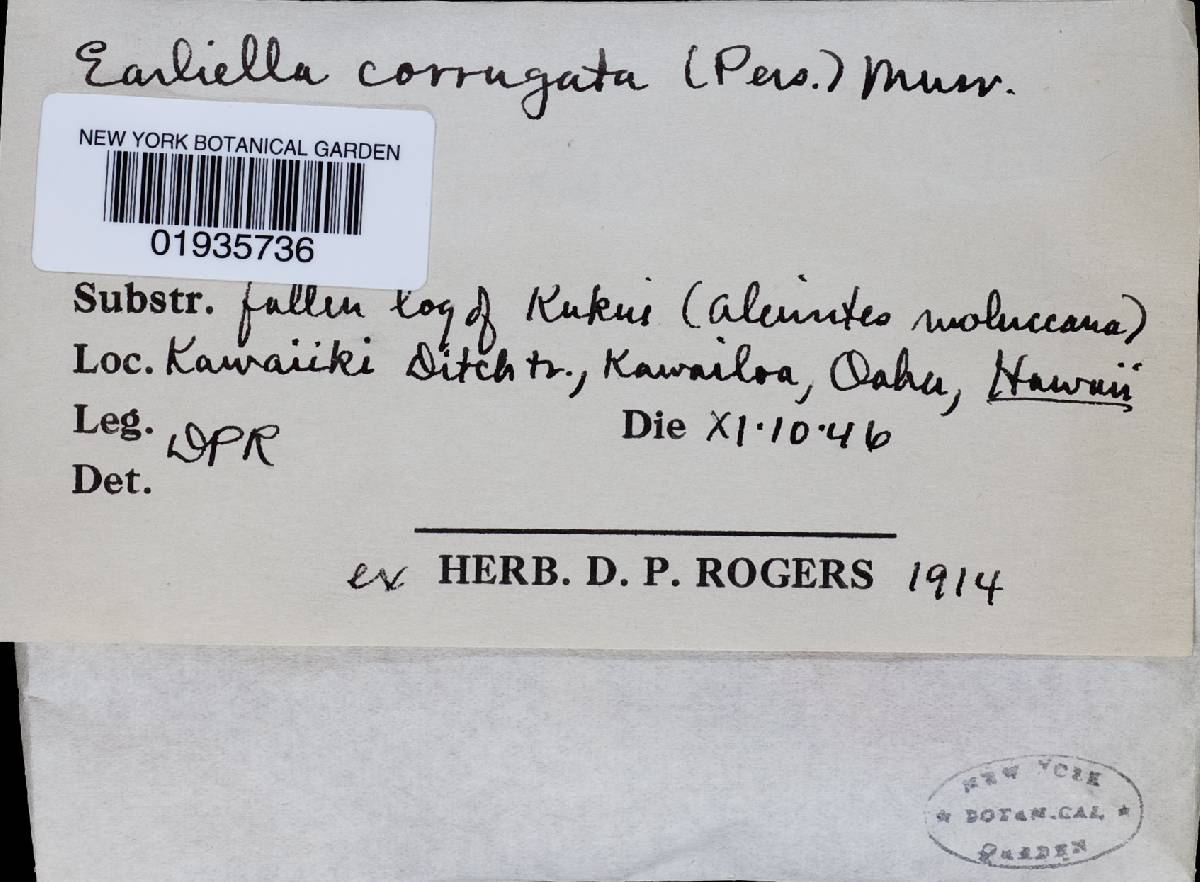 Earliella corrugata (Pers.) Murr.
NEW YORK BOTANICAL GARDEN
01935736
Substr. fallen log of Kukui (Aleurites moluccana)
Loc. Kawaiiki Ditch tr., Kawailoa, Oahu, Hawaii
Leg. DPR Die XI·10·46
Det.
ex HERB. D. P. ROGERS 1914
NEW YORK
★ BOTANICAL ★
GARDEN